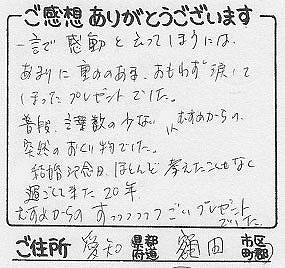 ご感想ありがとうございます
一言で感動と云ってしまうには
あまりに重みのある、おもわず涙して
しまったプレゼントでした。
普段、言葉数の少ない むすめからの、
突然のおくり物でした。
結婚記念日、ほとんど考えたこともなく
過ごして来た20年。
むすめからのすっっっっっごいプレゼント
でした。
ご住所 愛知 都道府県 額田 市区町郡